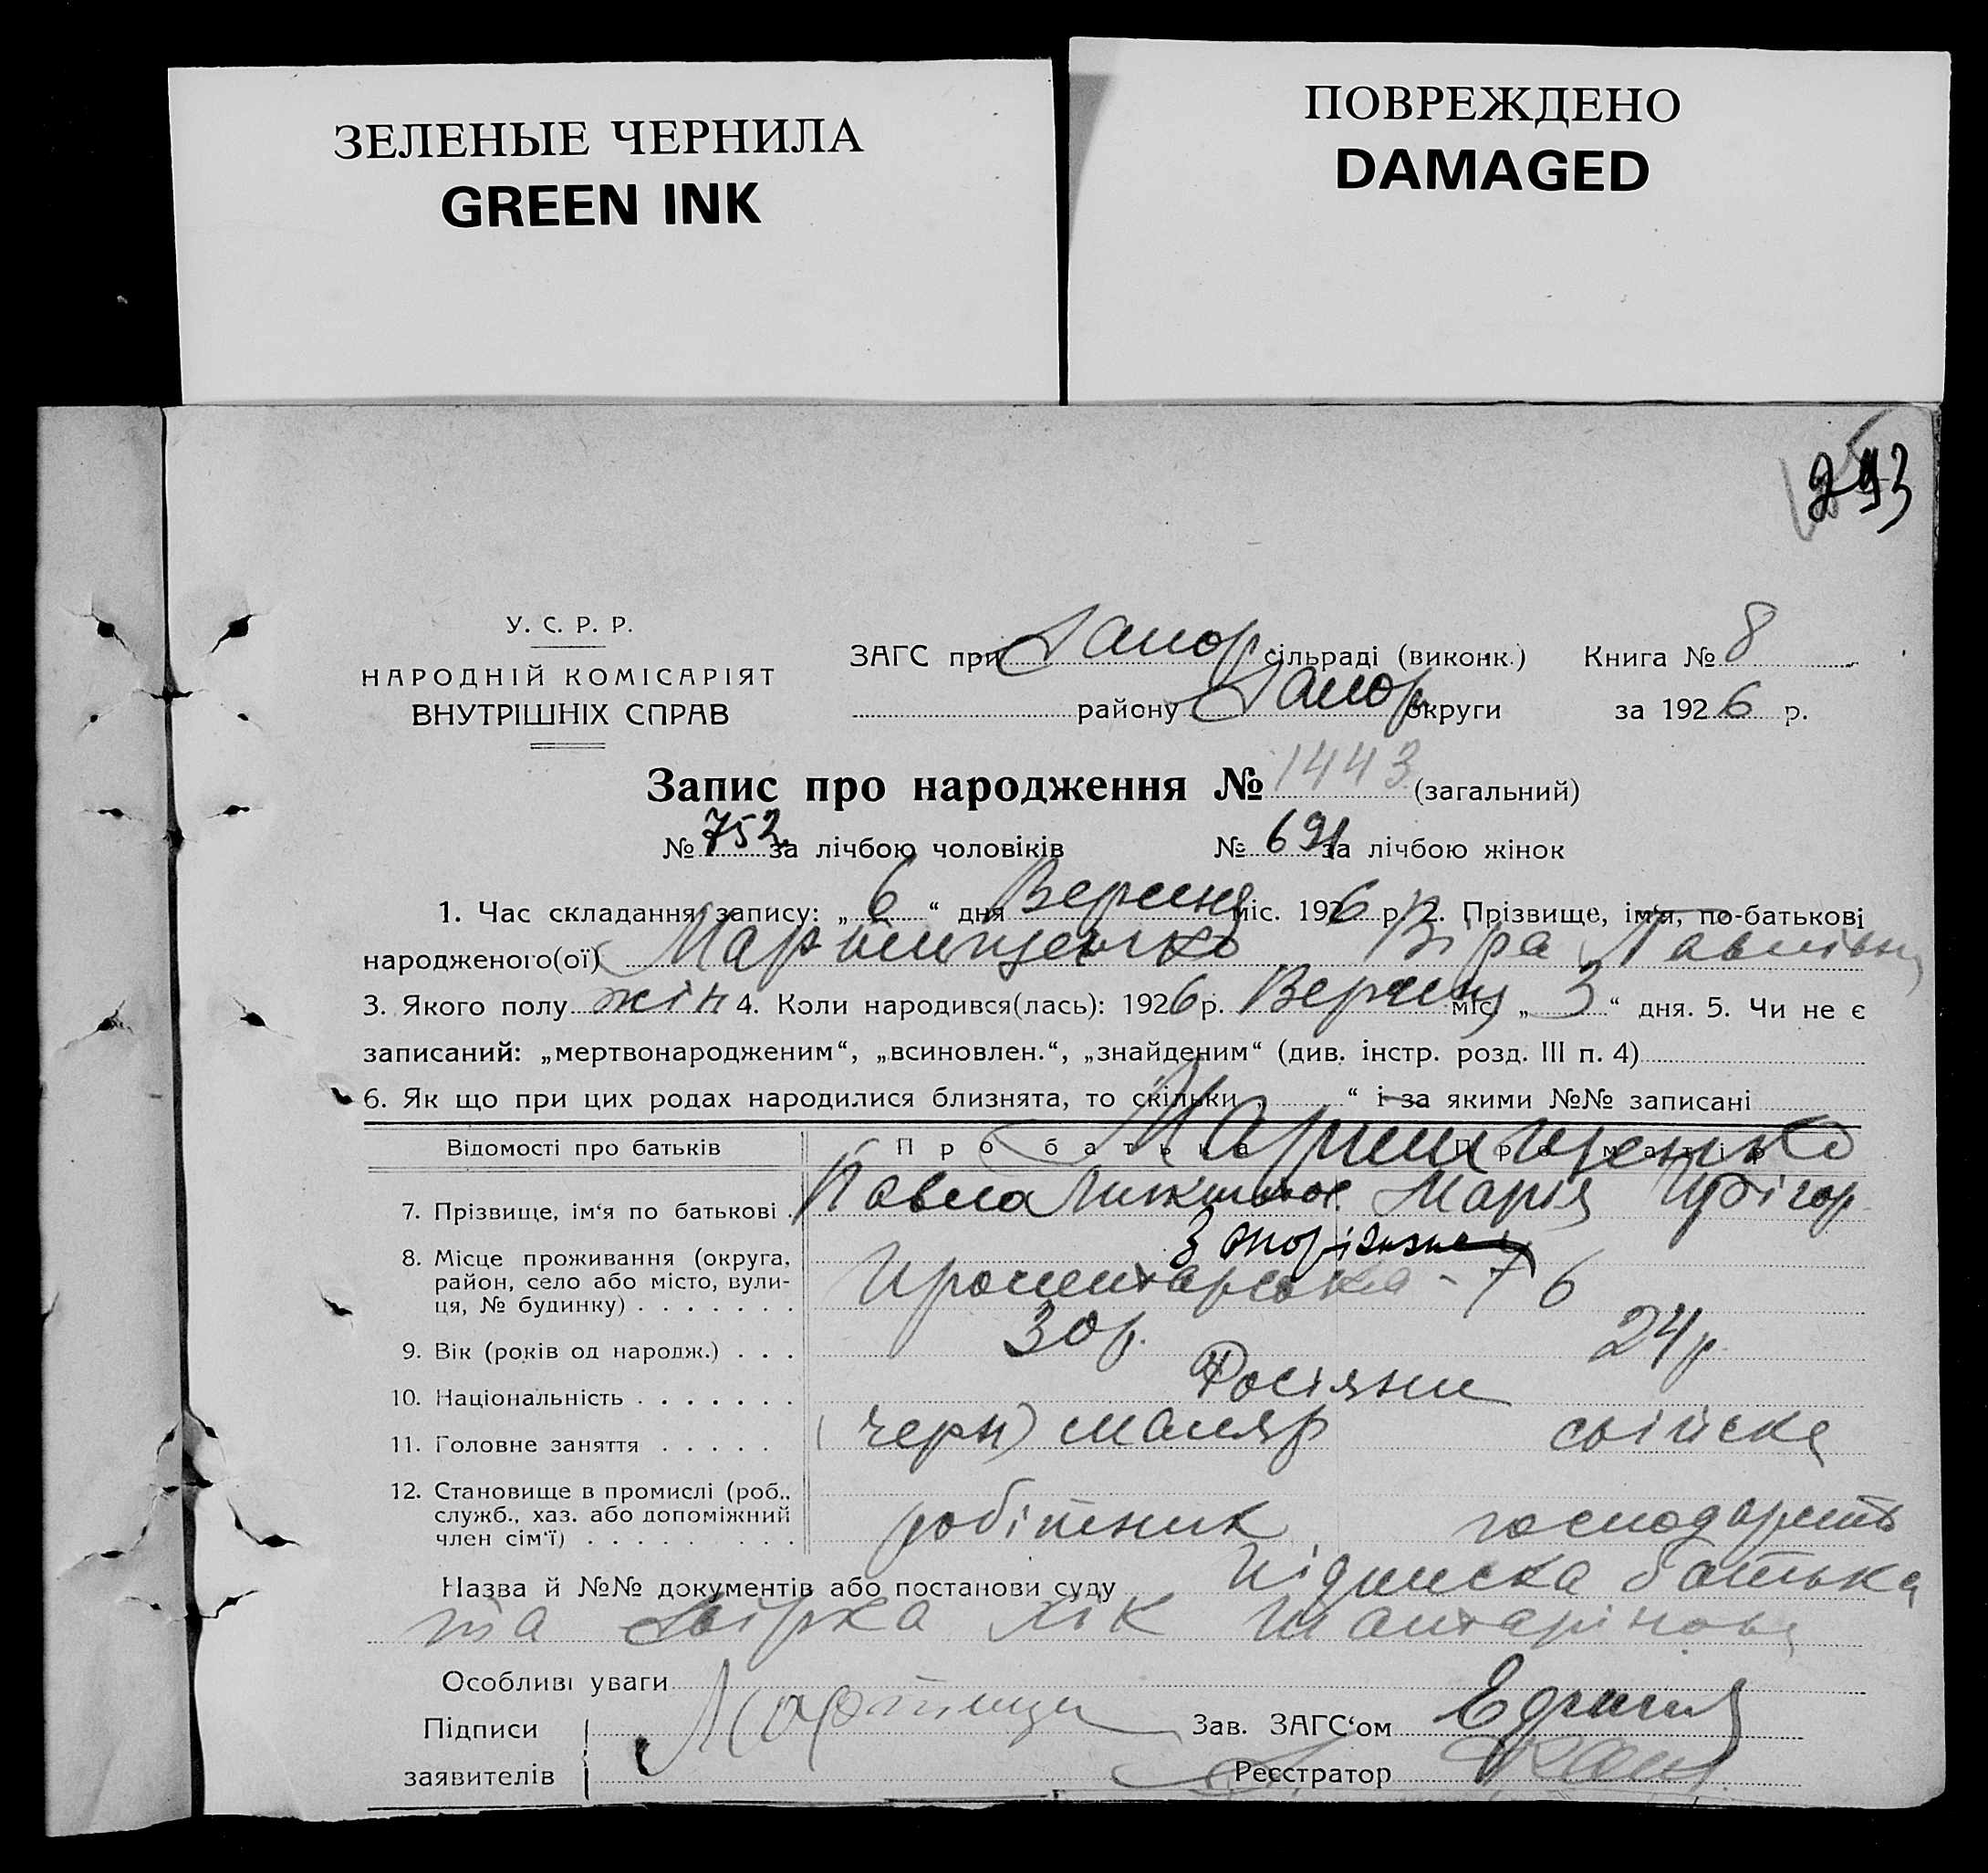 ЗЕЛЕНЫЕ ЧЕРНИЛА
GREEN INK
ПОВРЕЖДЕНО
DAMAGED
У. С. Р. Р.
НАРОДНІЙ КОМІСАРІЯТ
ВНУТРІШНІХ СПРАВ
ЗАГС при Запор. сільраді (виконк.) Книга № 8
району Запор. округи за 1926 р.
Запис про народження № 1443 (загальний)
№ 752 за лічбою чоловіків № 691 за лічбою жінок
1. Час складання запису: „ 6 “ дня Вересня міс. 1926 р. 2. Прізвище, ім'я, по-батькові
народженого(ої) Віра Павлівна
3. Якого полу жін 4. Коли народився(лась): 1926 р. Вересня міс. „ 3 “ дня. 5. Чи не є
записаний: „мертвонародженим“, „всиновлен.“, „знайденим“ (див. інстр. розд. III п. 4)
6. Як що при цих родах народилися близнята, то скільки „ “ і за якими №№ записані
Відомості про батьків Про батька Про матір
7. Прізвище, ім'я по батькові Павло Марія Григор.
8. Місце проживання (округа,
район, село або місто, вули-
ця, № будинку) 76
9. Вік (років од народж.) 30 р. 24 р.
10. Національність Росіяни
11. Головне заняття (черн) маляр свійска
12. Становище в промислі (роб.,
служб., хаз. або допоміжний
член сім'ї) робітник господарить
Назва й №№ документів або постанови суду підписка батька
та
Особливі уваги
Підписи Зав. ЗАГС'ом
заявителів Реєстратор